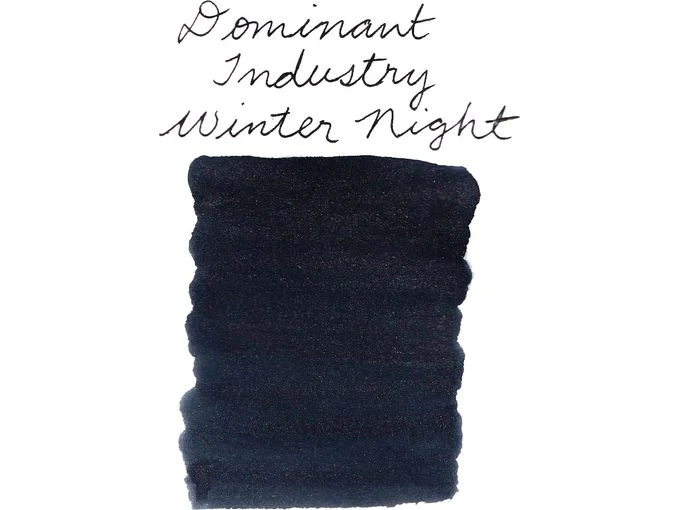 Dominant
Industry
Winter Night